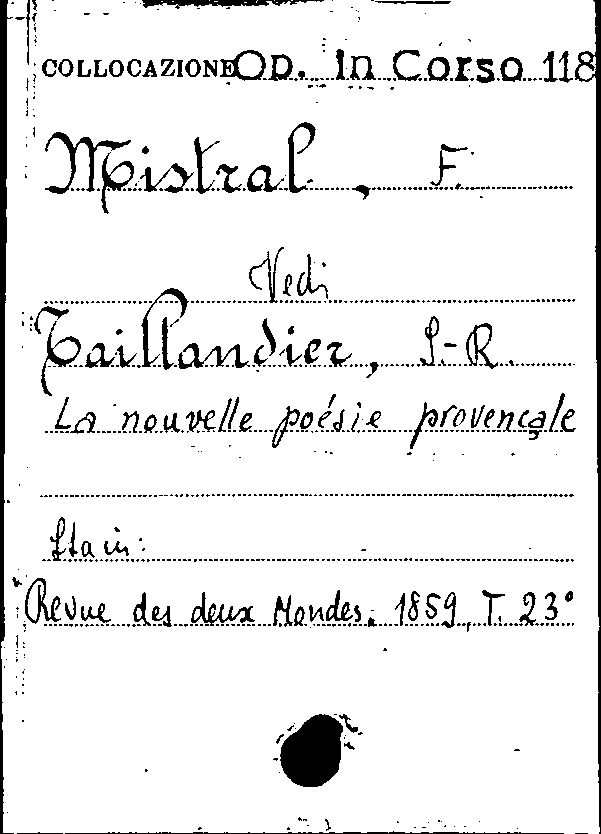 COLLOCAZIONE Op. In Corso 118
Mistral, F.
Vedi
Taillandier, S.-R.
La nouvelle poésie provençale
Sta in:
Revue des deux Mondes. 1859, T. 23°